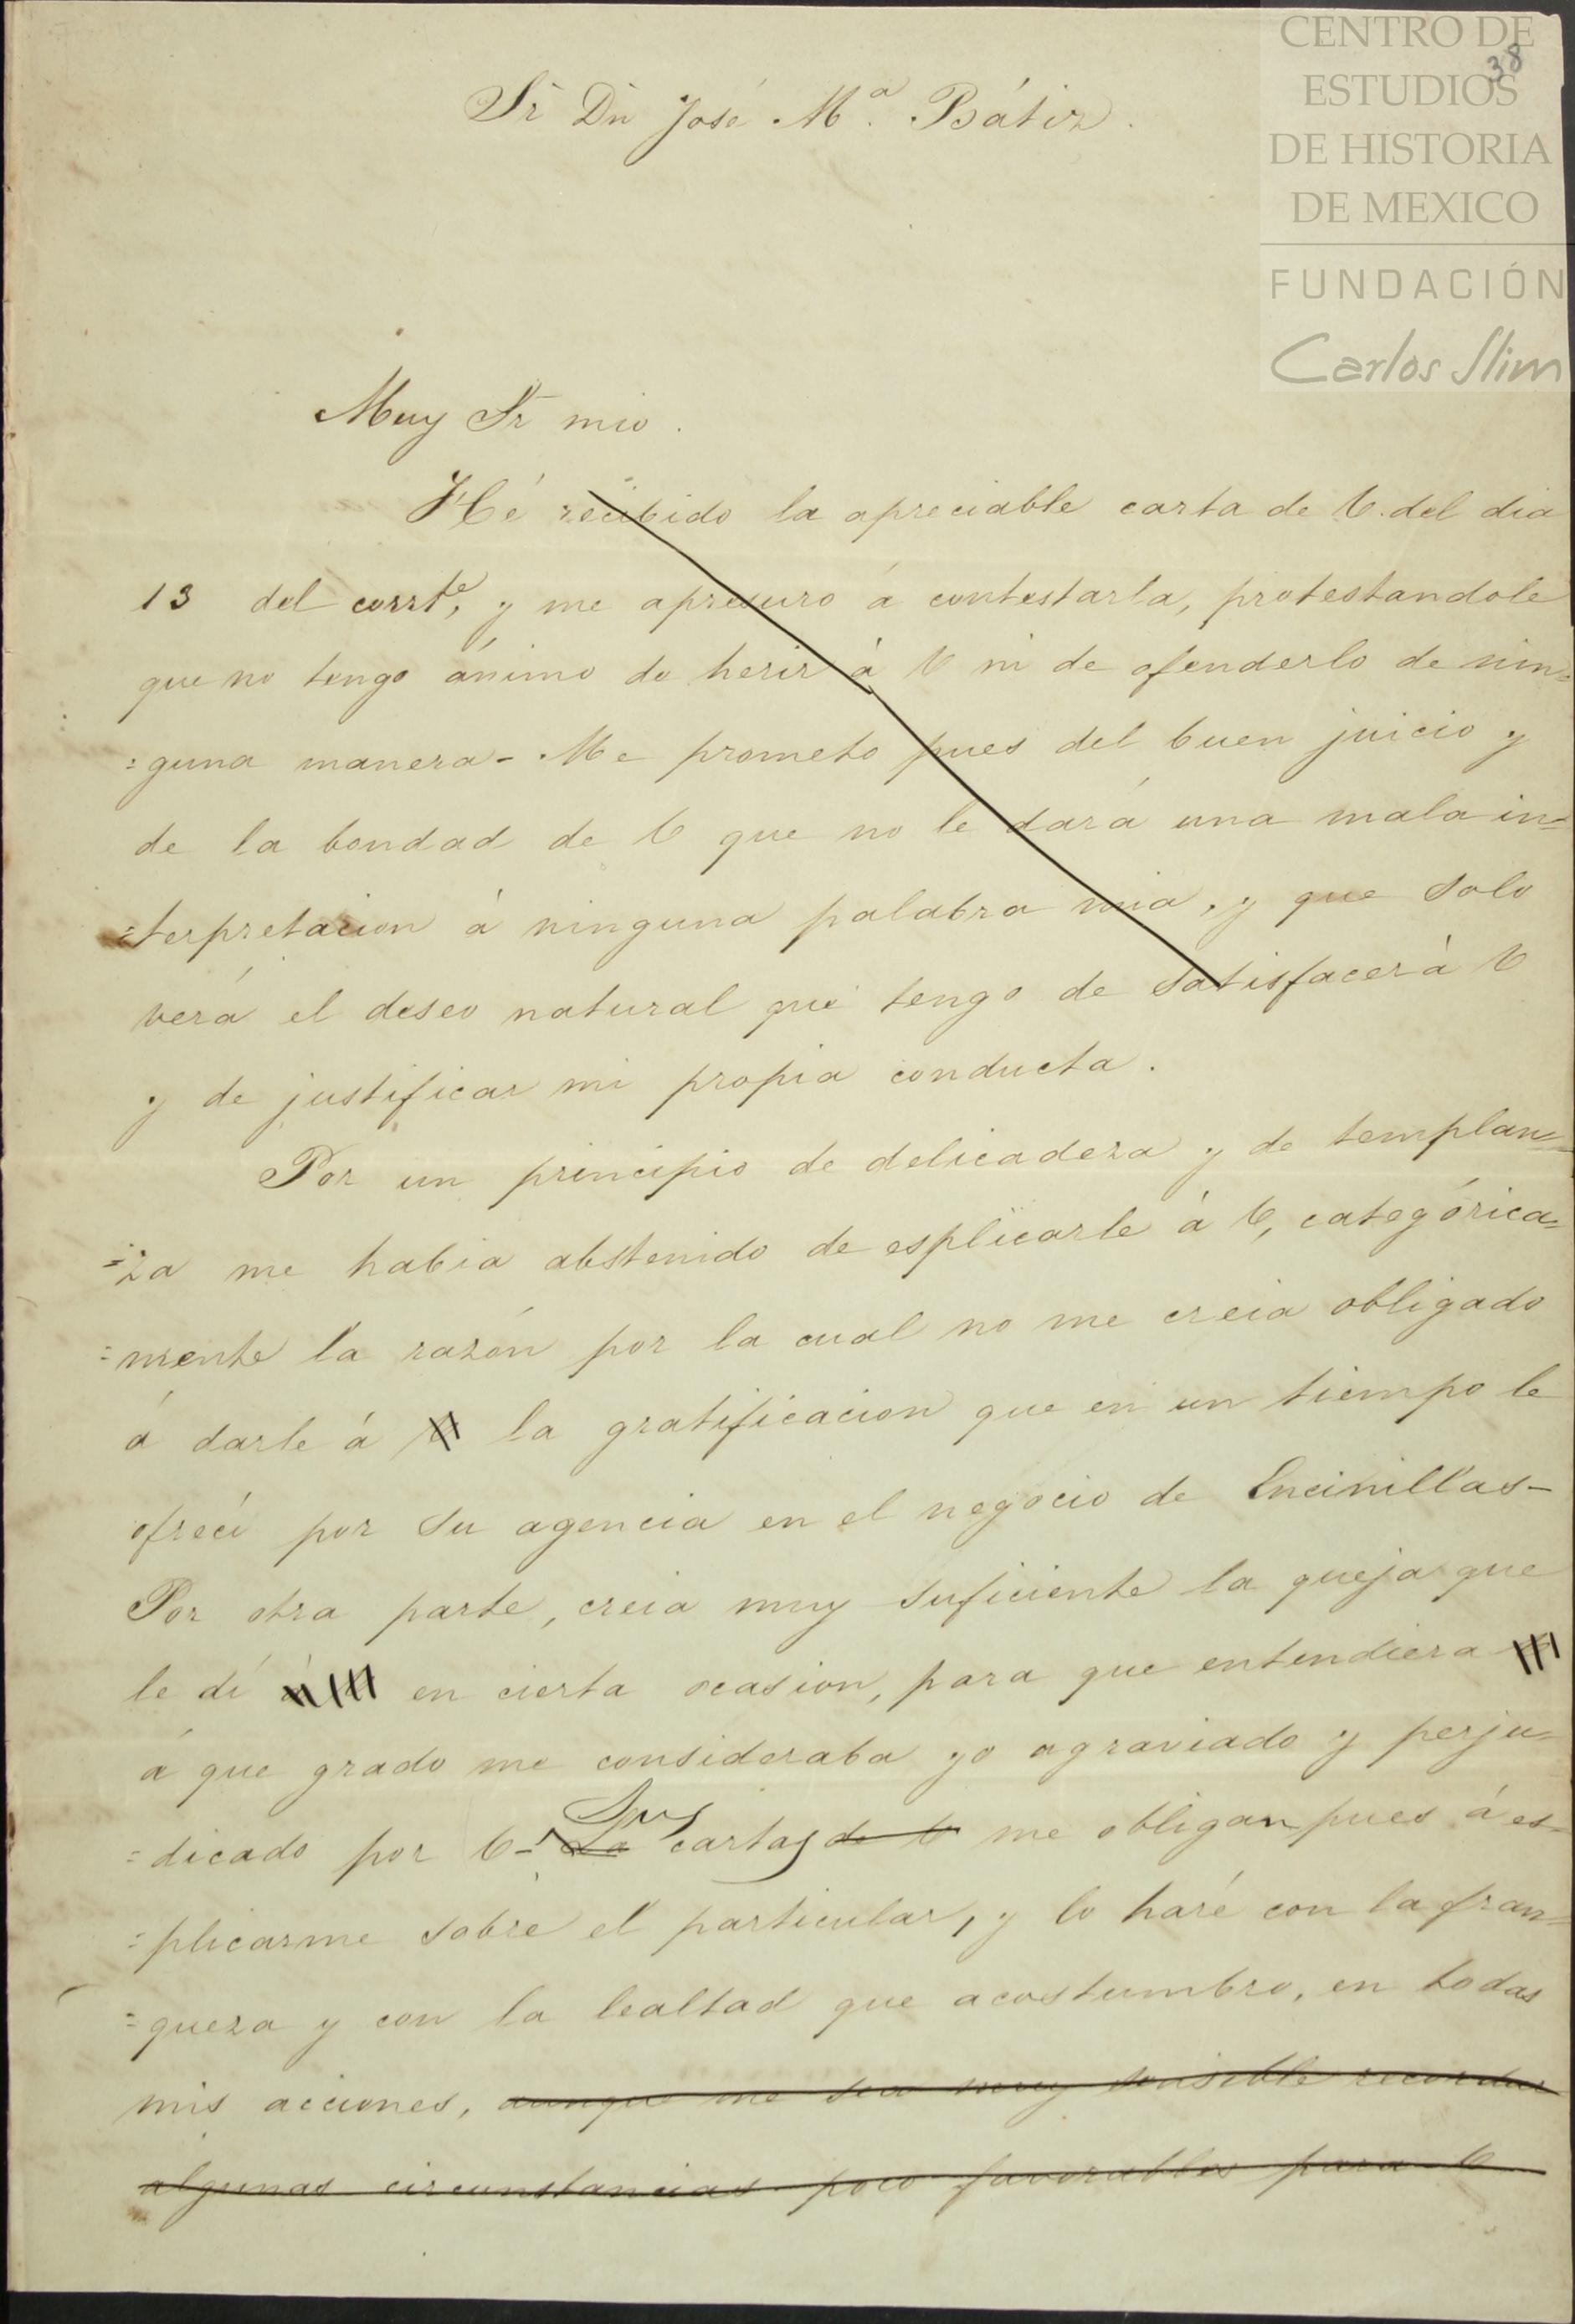 CENTRO DE
ESTUDIOS
DE HISTORIA
DE MEXICO
FUNDACIÓN
Carlos Slim
38
Sr Dn José Mª. Bátiz.
Muy Sr mio.
Hé recibido la apreciable carta de V. del dia
13 del corrte, y me apresuro á contestarla, protestandole
que no tengo ánimo de herir á V ni de ofenderlo de nin=
=guna manera- Me prometo pues del buen juicio y
de la bondad de V que no le dará una mala in=
=terpretacion á ninguna palabra mia, y que solo
verá el deseo natural que tengo de satisfacer á V
y de justificar mi propia conducta.
Por un principio de delicadeza y de templan=
=za me habia abstenido de esplicarle á V, categórica=
=mente la razón por la cual no me creia obligado
á darle á V la gratificacion que en un tiempo le
ofrecí por su agencia en el negocio de Encinillas-
Por otra parte, creia muy suficiente la queja que
le dí á en cierta ocasion, para que entendiera
á que grado me consideraba yo agraviado y perju=
=dicado por V- La Sus cartas de V me obligan pues á es=
=plicarme sobre el particular, y lo haré con la fran=
=queza y con la lealtad que acostumbro, en todas
mis acciones, aunque me sea muy sensible recordar
algunas circunstancias poco favorables para V